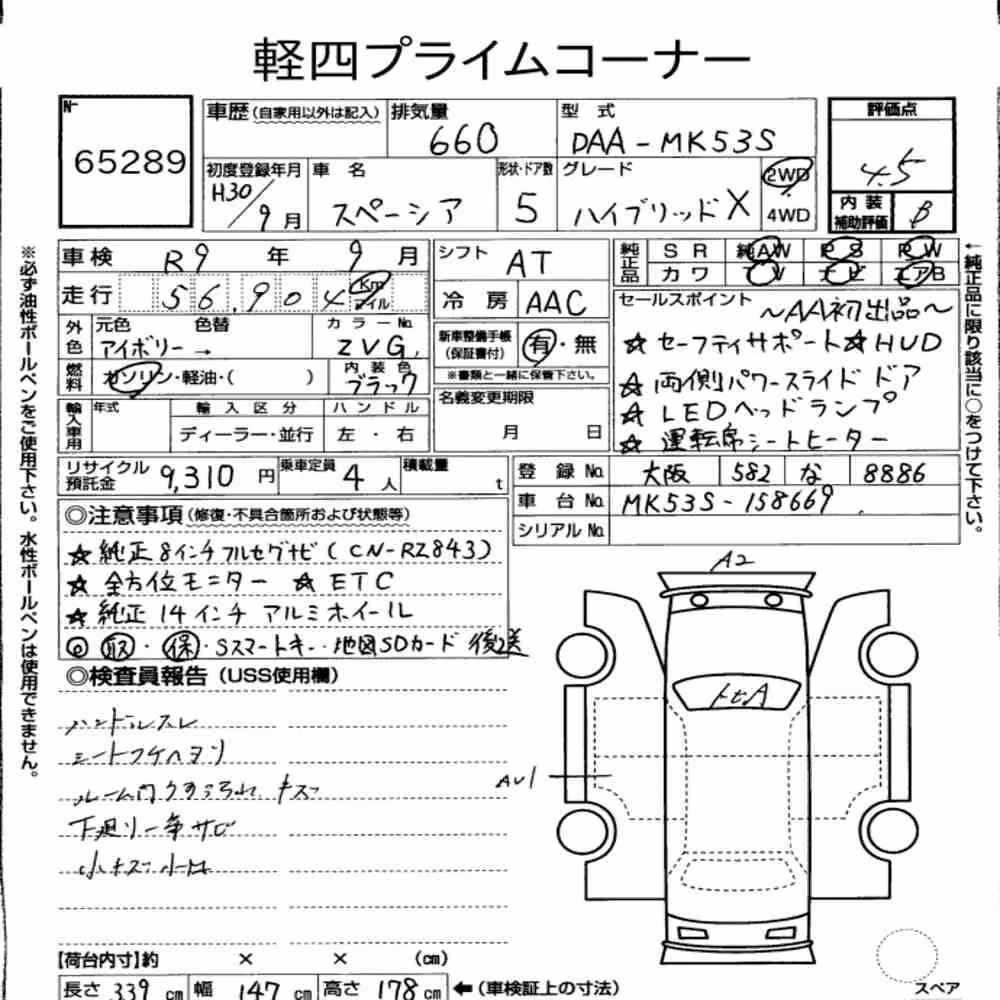 軽四プライムコーナー
N- 65289
車歴(自家用以外は記入) 排気量 660 型式 DAA-MK53S 評価点 4.5
初度登録年月 H30/9月 車名 スペーシア 形状・ドア数 5 グレード ハイブリッドX 2WD 4WD
内装補助評価 B
車検 R9年 9月 シフト AT 純正品 SR 純AW PS PW
走行 56,904 Km マイル 冷房 AAC カワ TV ナビ エアB
外色 元色 アイボリー → 色替 カラーNo. ZVG 新車整備手帳(保証書付) 有・無
※書類と一緒に保管下さい。
燃料 ガソリン・軽油・( ) 内装色 ブラック
名義変更期限 月 日
輸入車用 年式 輸入区分 ディーラー・並行 ハンドル 左・右
セールスポイント ~AA初出品~
☆セーフティサポート☆HUD
☆両側パワースライドドア
☆LEDヘッドランプ
☆運転席シートヒーター
リサイクル預託金 9,310円 乗車定員 4人 積載量 t
登録No. 大阪 582 な 8886
車台No. MK53S-158669
シリアルNo.
◎注意事項(修復・不具合箇所および状態等)
☆純正8インチフルセグナビ(CN-RZ843)
☆全方位モニター ☆ETC
☆純正14インチアルミホイール
◎取・保・Sスマートキー・地図SDカード 後送
◎検査員報告(USS使用欄)
ハンドルスレ
シートコゲヘタリ
ルーム内うすよごれ、キズ
下廻り一部サビ
小キズ小凹
A2
AU1
【荷台内寸】約 × × (cm)
長さ 339 cm 幅 147 cm 高さ 178 cm ←(車検証上の寸法)
スペア
※必ず油性ボールペンをご使用下さい。水性ボールペンは使用できません。
←純正品に限り該当に○をつけて下さい。